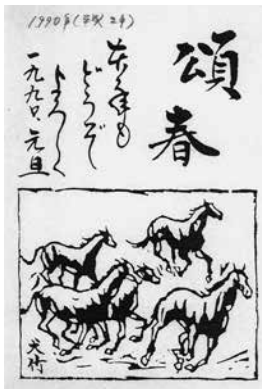 1990年(平成2年)
頌春
本年も
どうぞ
よろしく
一九九〇、元旦